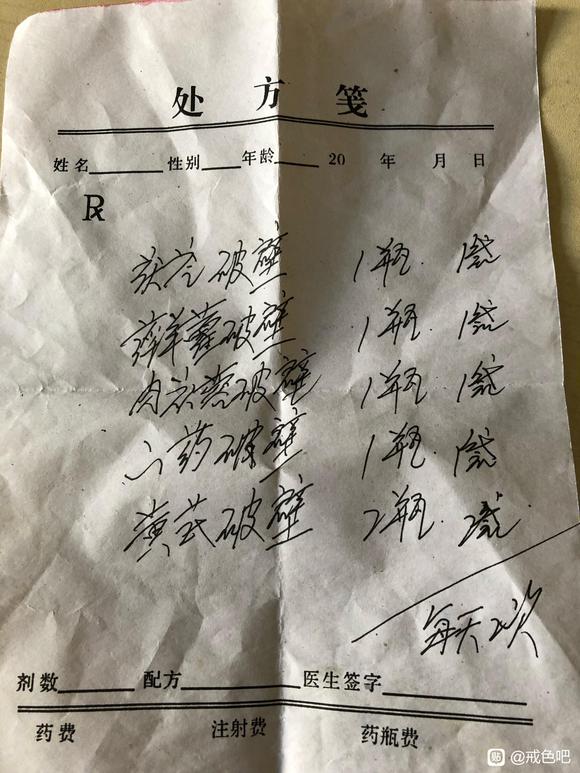 处方笺
姓名 性别 年龄 20 年 月 日
℞
茯苓破壁 1瓶. 1袋
淫羊藿破壁 1瓶. 1袋
肉苁蓉破壁 1瓶. 1袋
山药破壁 1瓶. 1袋
黄芪破壁 2瓶. 2袋
每天2次
剂数 配方 医生签字
药费 注射费 药瓶费
贴 @戒色吧